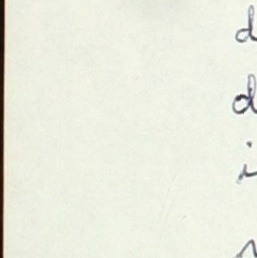 d
d
i